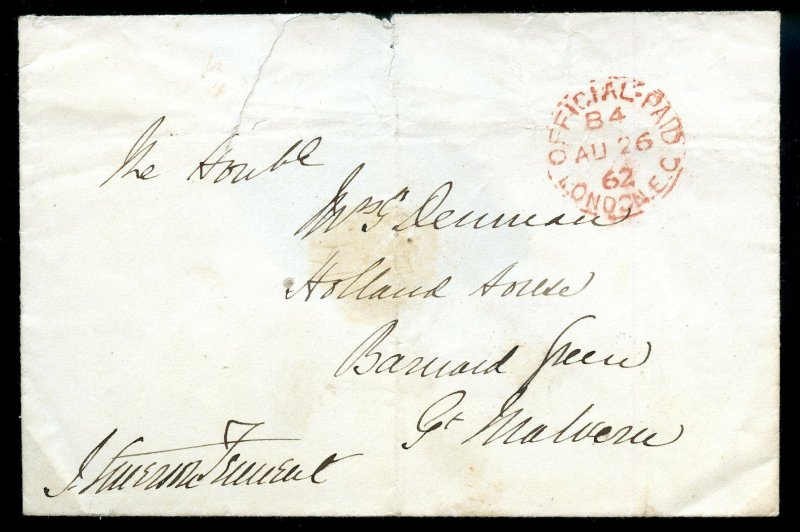 The Honble
Mrs G Denman
Holland House
Barnard Green
Gt Malvern
J Emerson Tennent
OFFICIAL-PAID
B4
AU 26
62
LONDON.E.C